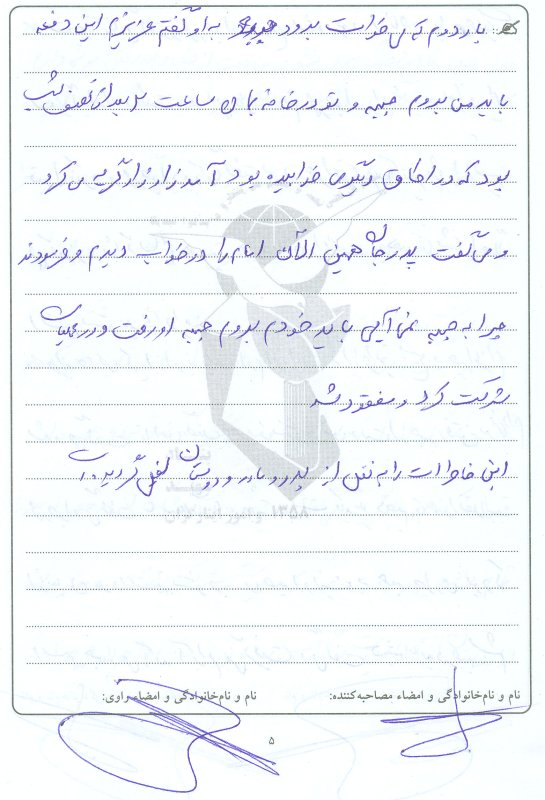 بار دوم که می خواست برود جبهه به او گفتم عزیزم این دفعه
باید من بروم جبهه و تو در خانه بمان ساعت ۲ بعد از نصف شب
بود که در اطاق دیگری خوابیده بود آمد زار زار گریه می کرد
و می گفت پدر جان همین الآن امام را در خواب دیدم و فرمودند
چرا به جبهه نمی آیی باید خودم بروم جبهه او رفت و در عملیات
شرکت کرد و مفقود شد
این خاطرات را به نقل از پدر و مادر و دوستان نقل گردیده است
۱۳۵۸
نام و نام‌خانوادگی و امضاء مصاحبه‌کننده:
نام و نام‌خانوادگی و امضاء راوی:
۵